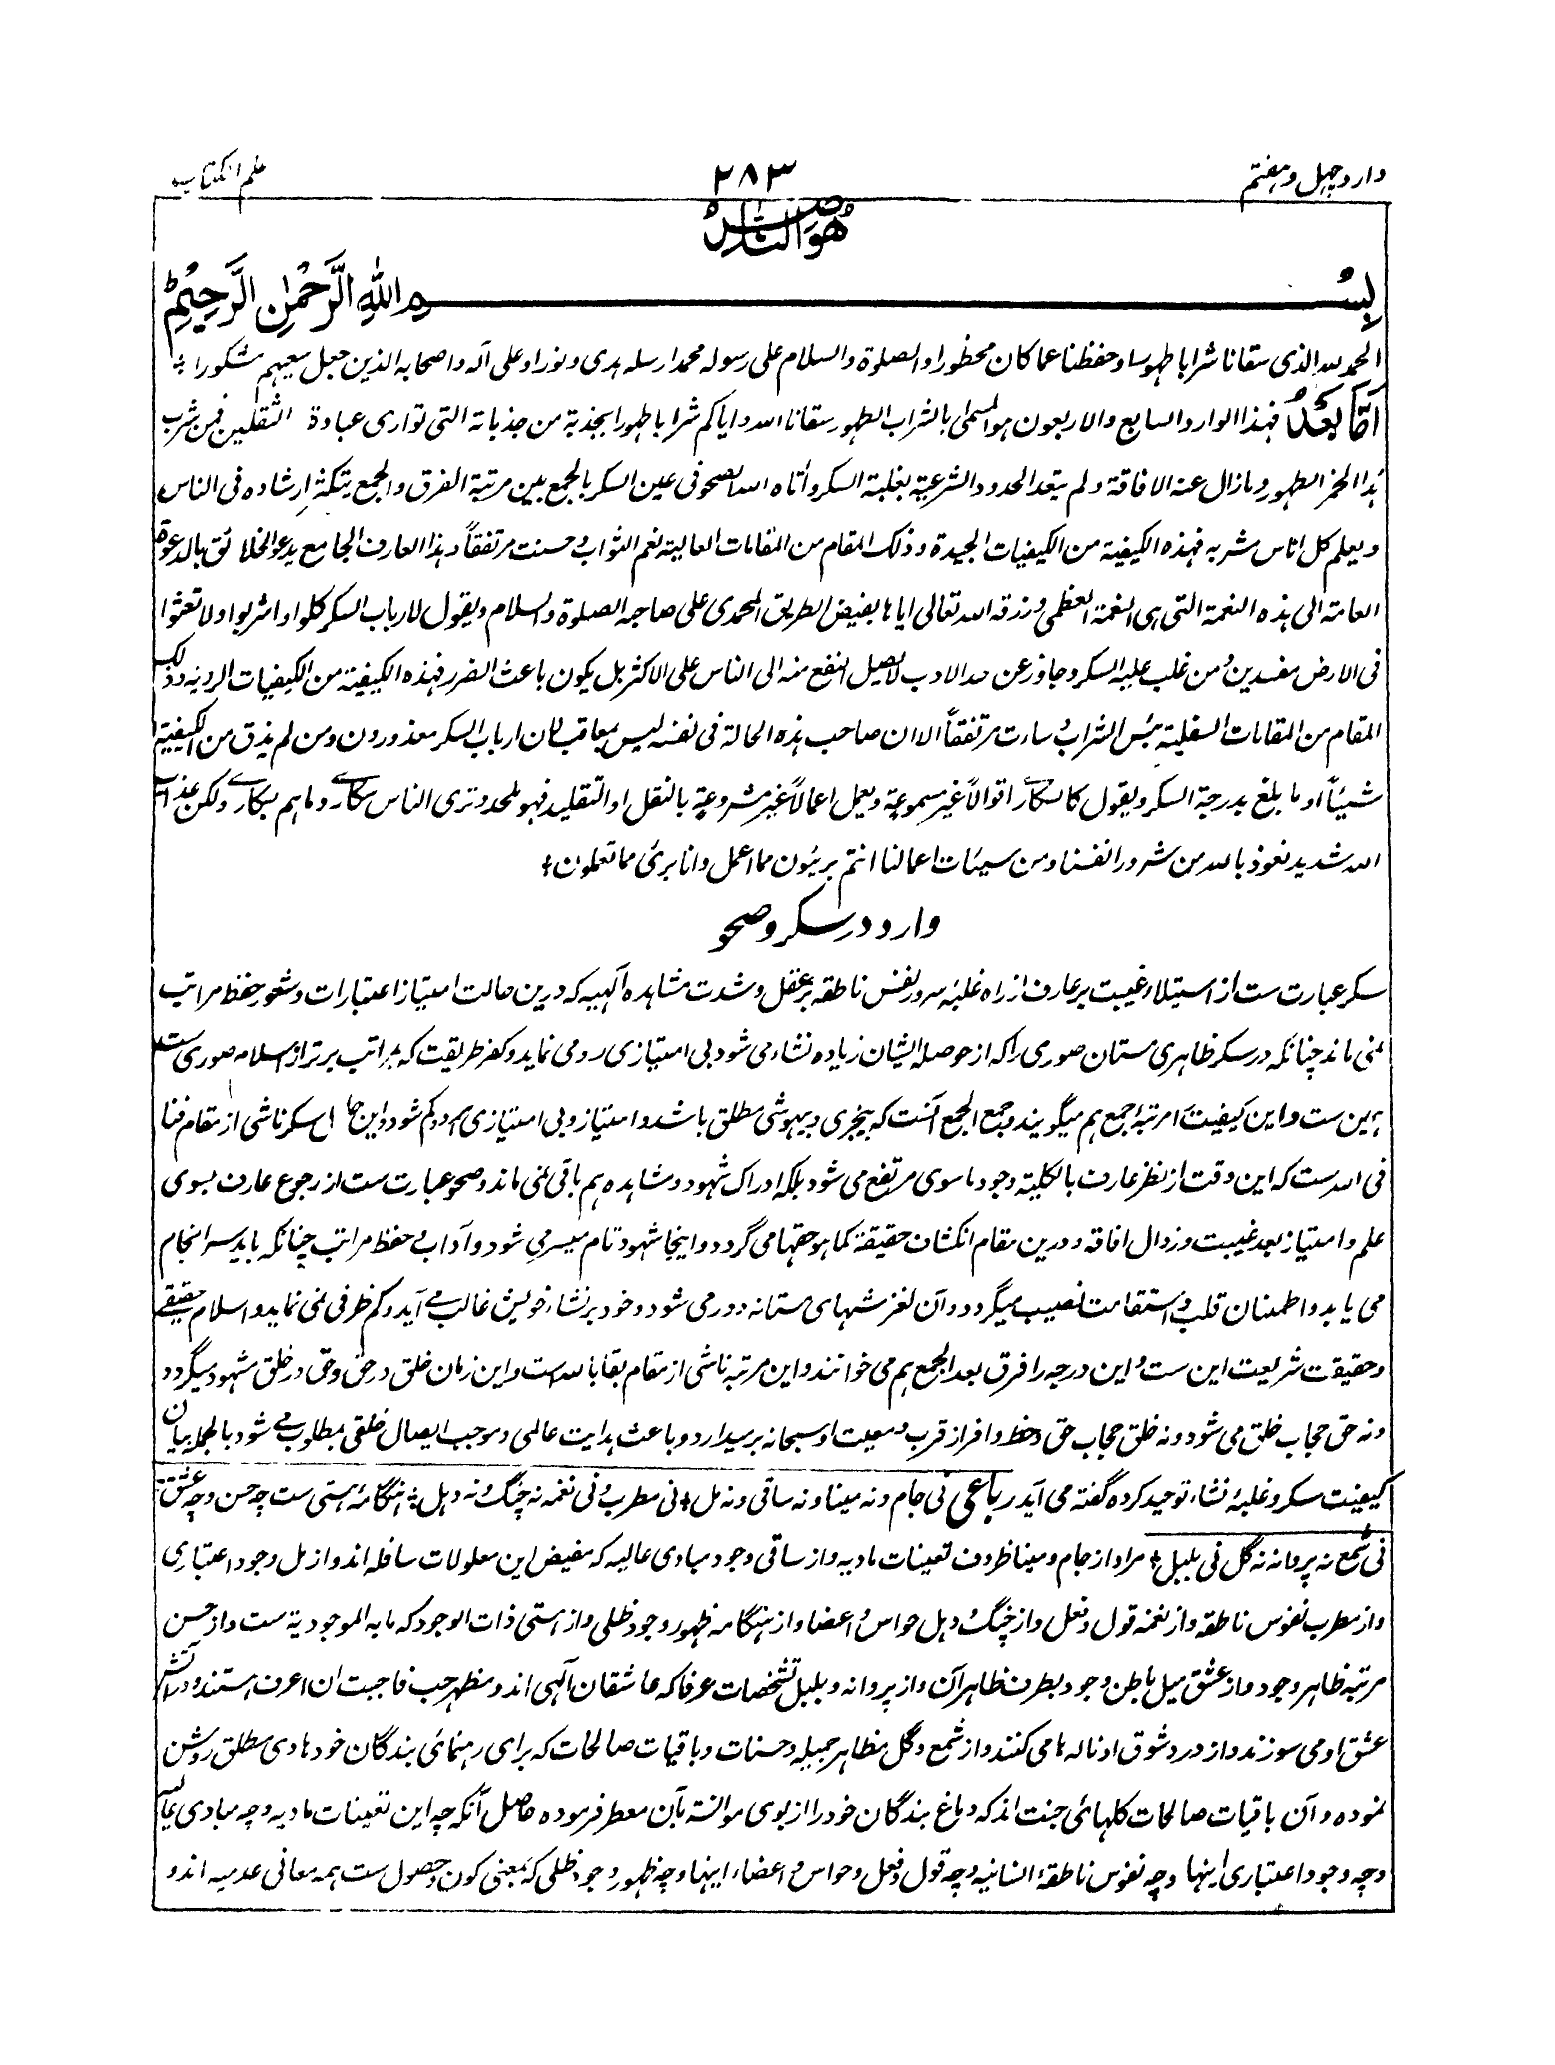 وارد چهل و هفتم
۲۸۳
علم الکتاب
هو الناصر
بسم الله الرحمن الرحیم
الحمد لله الذی سقانا شرابا طهورا و حفظنا عما کان محظورا والصلوة والسلام علی رسوله محمد ارسله هدی و نورا و علی آله و اصحابه الذین جعل سعیهم مشکورا
اما بعد فهذا الوارد السابع والاربعون هو المسمی بالشراب الطهور سقانا الله و ایاکم شرابا طهورا بجذبة من جذباته التی توازی عبادة الثقلین فمن شرب
هذا الخمر الطهور و مازال عنه الافاقة و لم یتعد الحدود الشرعیة بغلبة السکر و أتاه الله الصحو فی عین السکر بالجمع بین مرتبة الفرق والجمع یتکئ ارشاده فی الناس
و یعلم کل اناس مشربه فهذه الکیفیة من الکیفیات الجیدة و ذلک المقام من المقامات العالیة نعم الثواب و حسنت مرتفقاً و هذا العارف الجامع یدعو الخلائق بالدعوة
العامة الی هذه النعمة التی هی النعمة العظمی و رزقه الله تعالی ایاها بفیض الطریق المحمدی علی صاحبه الصلوة والسلام و یقول لارباب السکر کلوا و اشربوا ولا تعثوا
فی الارض مفسدین و من غلب علیه السکر و جاوز عن حد الادب لا یصل النفع منه الی الناس علی الاکثر بل یکون باعث الضرر فهذه الکیفیة من الکیفیات الردیه و ذلک
المقام من المقامات السفلیة بئس الشراب و ساءت مرتفقاً الا ان صاحب هذه الحالة فی نفسه لیس بمعاقب لان ارباب السکر معذورون و من لم یذق من الکیفیة
شیئاً او ما بلغ بدرجة السکر و یقول کالسکاری اقوالاً غیر مسموعة و یعمل اعمالاً غیر مشروعة بالنقل او التقلید فهو ملحد و تری الناس سکاری و ما هم بسکاری ولکن عذاب
الله شدید نعوذ بالله من شرور انفسنا و من سیئات اعمالنا انتم بریئون مما اعمل و انا بریٔ مما تعملون
وارد در سکر و صحو
سکر عبارت ست از استیلاء غیبت بر عارف از راه غلبۀ سرور نفس ناطقه بر عقل و شدت مشاهده آلهیه که درین حالت امتیاز اعتبارات و شعور حفظ مراتب
نمی ماند چنانکه در سکر ظاهری مستان صوری را که از حوصله ایشان زیاده نشاء می شود بی امتیازی رو می نماید و کفر طریقت که بمراتب برتر از اسلام صوری ست
همین ست و این کیفیت را مرتبه جمع هم میگویند و جمع الجمع آنست که بیخبری و بیهوشی مطلق باشد و امتیاز و بی امتیازی هر دو گم شود و این حال سکر ناشی از مقام فنا
فی الله ست که این وقت از نظر عارف بالکلیة وجود ماسوی مرتفع می شود بلکه ادراک شهود و مشاهده هم باقی نمی ماند و صحو عبارت ست از رجوع عارف بسوی
علم و امتیاز بعد غیبت و زوال افاقه و درین مقام انکشاف حقیقة کما هو حقها می گردد و اینجا شهود تام میسر می شود و آداب و حفظ مراتب چنانکه باید سرانجام
می یابد و اطمنان قلب و استقامت نصیب میگردد و آن لغزشهای مستانه دور می شود و خود بر نشاء خویش غالب می آید و کم ظرفی نمی نماید و اسلام حقیقی
و حقیقت شریعت این ست و این درجه را فرق بعد الجمع هم می خوانند و این مرتبه ناشی از مقام بقا بالله ست و این زمان خلق در حق و حق در خلق مشهود میگردد
و نه حق حجاب خلق می شود و نه خلق حجاب حق و حظ وافر از قرب و معیت او سبحانه برمیدارد و باعث هدایت عالمی و موجب ایصال خلقی بمطلوب می شود بالجمله بیان
کیفیت سکر و غلبۀ نشاء توحید کرده گفته می آید رباعی نی جام و نه مینا و نه ساقی و نه مل نی مطرب و نی نغمه نه چنگ و نه دهل هنگامۀ هستی ست چه حسن و چه عشق
نی شمع نه پروانه نه گل نی بلبل مراد از جام و مینا ظروف تعینات مادیه و از ساقی وجود مبادی عالیه که مفیض این معلولات سافله اند و از مل وجود اعتباری
و از مطرب نفوس ناطقه و از نغمه قول و فعل و از چنگ و دهل حواس و اعضا و از هنگامه ظهور وجود ظلی و از هستی ذات الوجود که ما به الموجودیة ست و از حسن
مرتبه ظاهر وجود و از عشق میل باطن وجود بطرف ظاهر آن و از پروانه و بلبل تشخصات عرفا که عاشقان آلهی اند و مظهر حب فاحببت ان اعرف هستند و در آتش
عشق او می سوزند و از درد شوق او ناله ها می کنند و از شمع و گل مظاهر جمیله و حسنات و باقیات صالحات که برای رهنمائی بندگان خود هادی مطلق روشن
نموده و آن باقیات صالحات گلهائی جنت اند که دماغ بندگان خود را از بوی موانسة بآن معطر فرموده حاصل آنکه چه این تعینات مادیه و چه مبادی عالیه
و چه وجود اعتباری اینها و چه نفوس ناطقۀ انسانیه و چه قول و فعل و حواس و اعضاء اینها و چه ظهور وجود ظلی که بمعنی کون و حصول ست همه معانی عدمیه اند و